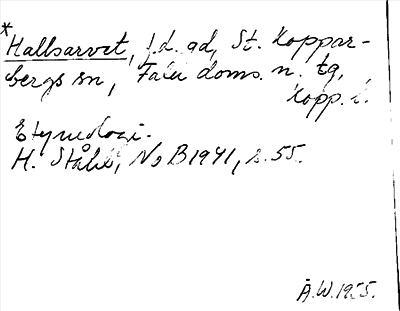 *
Hallsarvet, f.d. gd, St. Koppar-
bergs sn, Falu doms. n. tg,
Kopp. l.
Etymologi.
H. Ståhl, NoB 1941, s. 55.
Å.W. 1955.